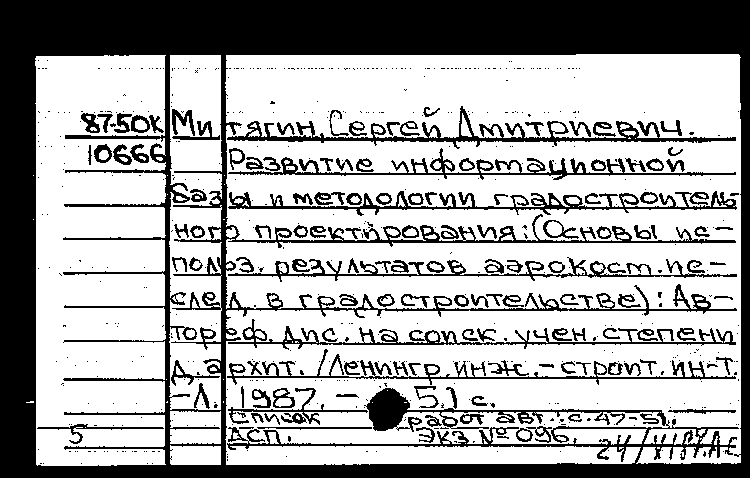 87-50К Митягин, Сергей Дмитриевич.
10666 Развитие информационной
базы и методологии градостроитель
ного проектирования: (Основы ис-
польз. результатов аэрокосм. ис-
след. в градостроительстве): Ав-
тореф. дис. на соиск. учен. степени
д. архит. /Ленингр. инж.-строит. ин-т.
-Л. 1987. - 51 с.
Список работ авт.: с. 47-51.
5 ДСП. Экз № 096.